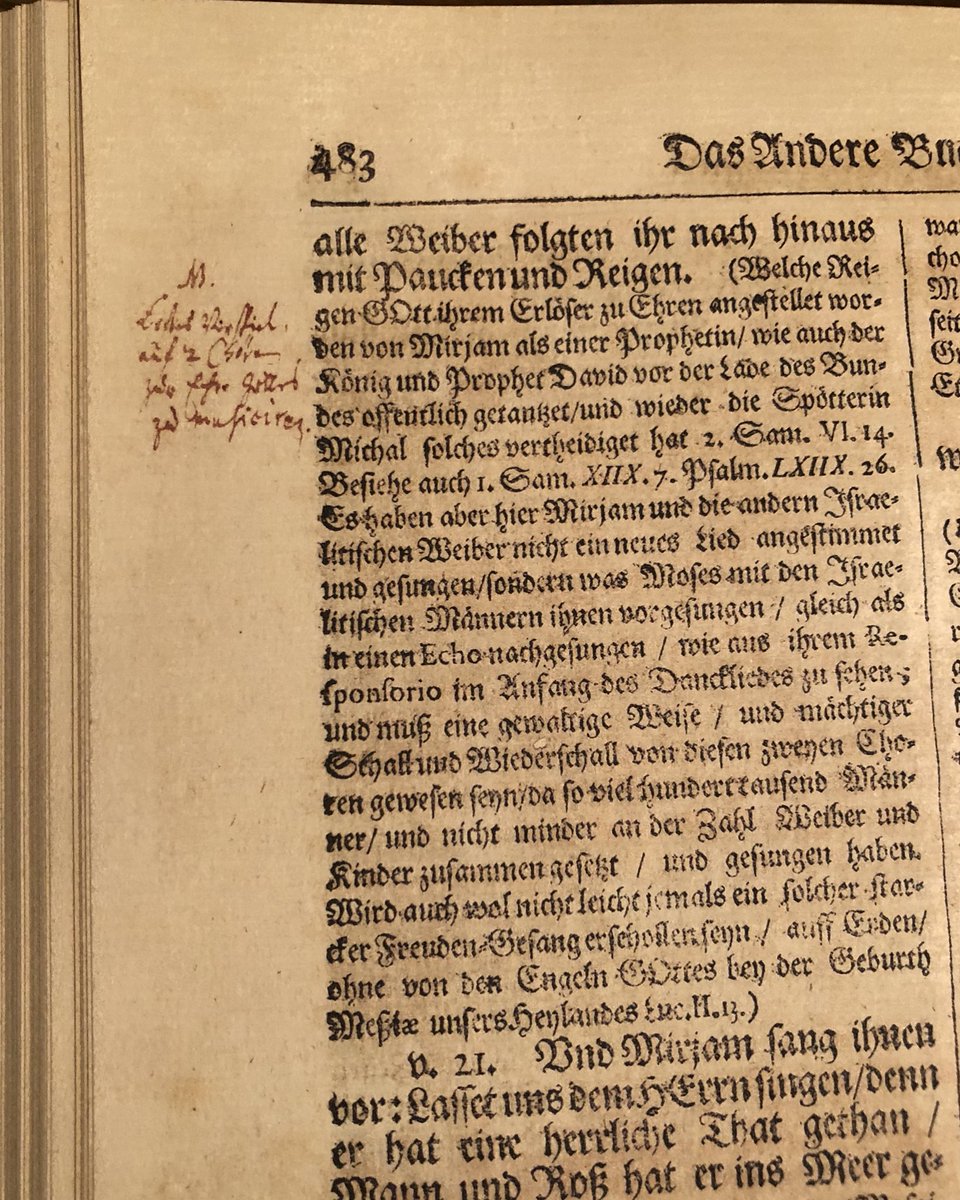 483
Das Andere Bu
alle Weiber folgten ihr nach hinaus
mit Paucken und Reigen. (Welche Rei-
gen GOtt ihrem Erlöser zu Ehren angestellet wor-
den von Mirjam als einer Prophetin/ wie auch der
König und Prophet David vor der Lade des Bun-
des offentlich getantzet/und wieder die Spötterin
Michal solches vertheidiget hat 2. Sam. VI. 14.
Besiehe auch 1. Sam. XIIX. 7. Psalm. LXIIX. 26.
Es haben aber hier Mirjam und die andern Israe-
litischen Weiber nicht ein neues Lied angestimmet
und gesungen/sondern was Moses mit den Israe-
litischen Männern ihnen vorgesungen / gleich als
in einen Echo nachgesungen / wie aus ihrem Re-
sponsorio im Anfang des Danckliedes zu sehen;
und muß eine gewaltige Weise / und mächtiger
Schall und Wiederschall von diesen zweyen Cho-
ren gewesen seyn/da so viel hundert tausend Män-
ner/ und nicht minder an der Zahl Weiber und
Kinder zusammen gesetzt / und gesungen haben.
Wird auch wol nicht leicht jemals ein solcher star-
cker Freuden-Gesang erschollen seyn / auff Erden/
ohne von den Engeln GOttes bey der Geburth
Meßiæ unsers Heylandes Luc. II. 13.)
v. 21. Vnd Mirjam sang ihnen
vor: Lasset uns dem HErrn singen/denn
er hat eine herrliche That gethan /
Mann und Roß hat er ins Meer ge-
NB.
Erstes Vorspiel,
auf 2 Chören
zur Ehre Gottes
zu musiciren.
wa
cho
M
seit
Gr
Et